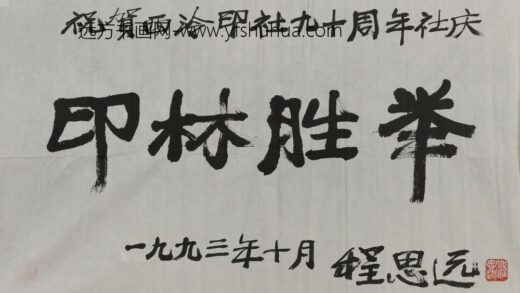 祝贺西泠印社九十周年社庆
远方书画网 www.yfshuhua.com
印林胜举
一九九三年十月 程思远